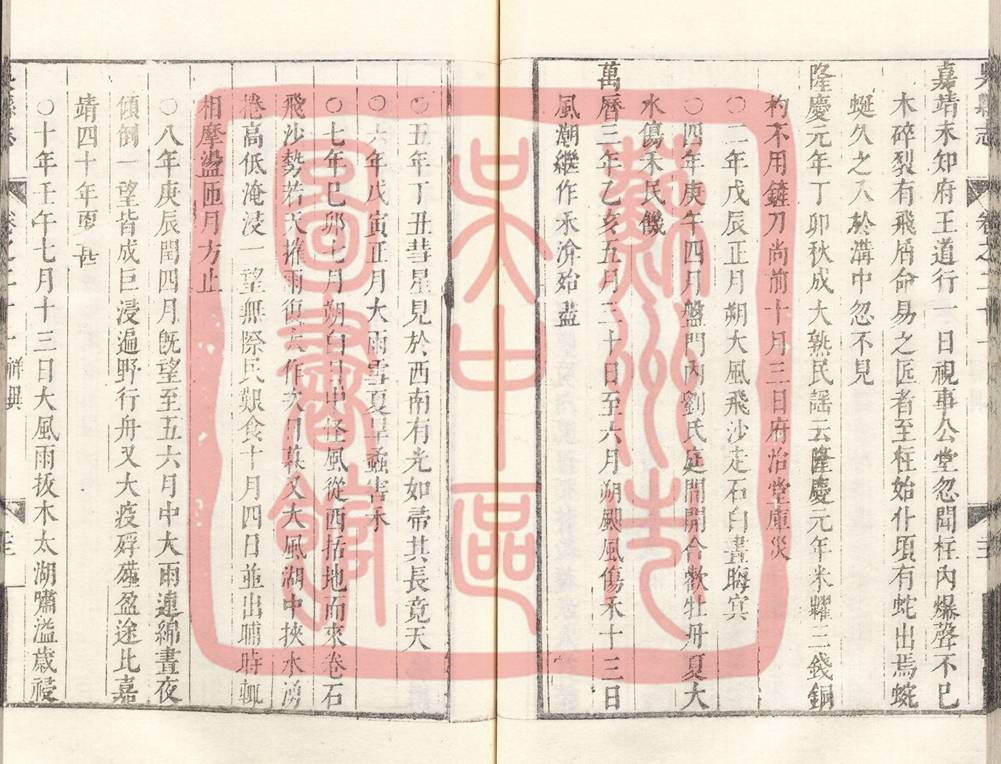 嘉靖末知府王道行一日視事公堂忽聞柱內爆聲不已
木碎裂有飛屑命易之匠者至柱始仆頃有蛇出焉蜿
蜒久之入於溝中忽不見
隆慶元年丁卯秋成大熟民謠云隆慶元年米糶三錢銅
杓不用鏟刀尚前十月三日府治堂庫災
○二年戊辰正月朔大風飛沙走石白晝晦冥
○四年庚午四月盤門內劉氏庭開開合歡牡丹夏大
水傷禾民饑
萬曆三年乙亥五月三十日至六月朔颶風傷禾十三日
風潮繼作禾渰殆盡
○五年丁丑彗星見於西南有光如帚其長竟天
○六年戊寅正月大雨雪夏旱蟊害禾
○七年己卯七月朔白日中怪風從西括地而來卷石
飛沙勢若天摧雨復大作次日暮又大風湖中挾水湧
捲高低淹浸一望無際民艱食十月四日並出晡時輒
相摩盪匝月方止
○八年庚辰閏四月旣望至五六月中大雨連綿晝夜
傾倒一望皆成巨浸遍野行舟又大疫殍殣盈途比嘉
靖四十年更甚
○十年壬午七月十三日大風雨拔木太湖嘯溢歲祲
吳縣志
卷之二十一
祥異
蘇州市
吳中區
圖書館